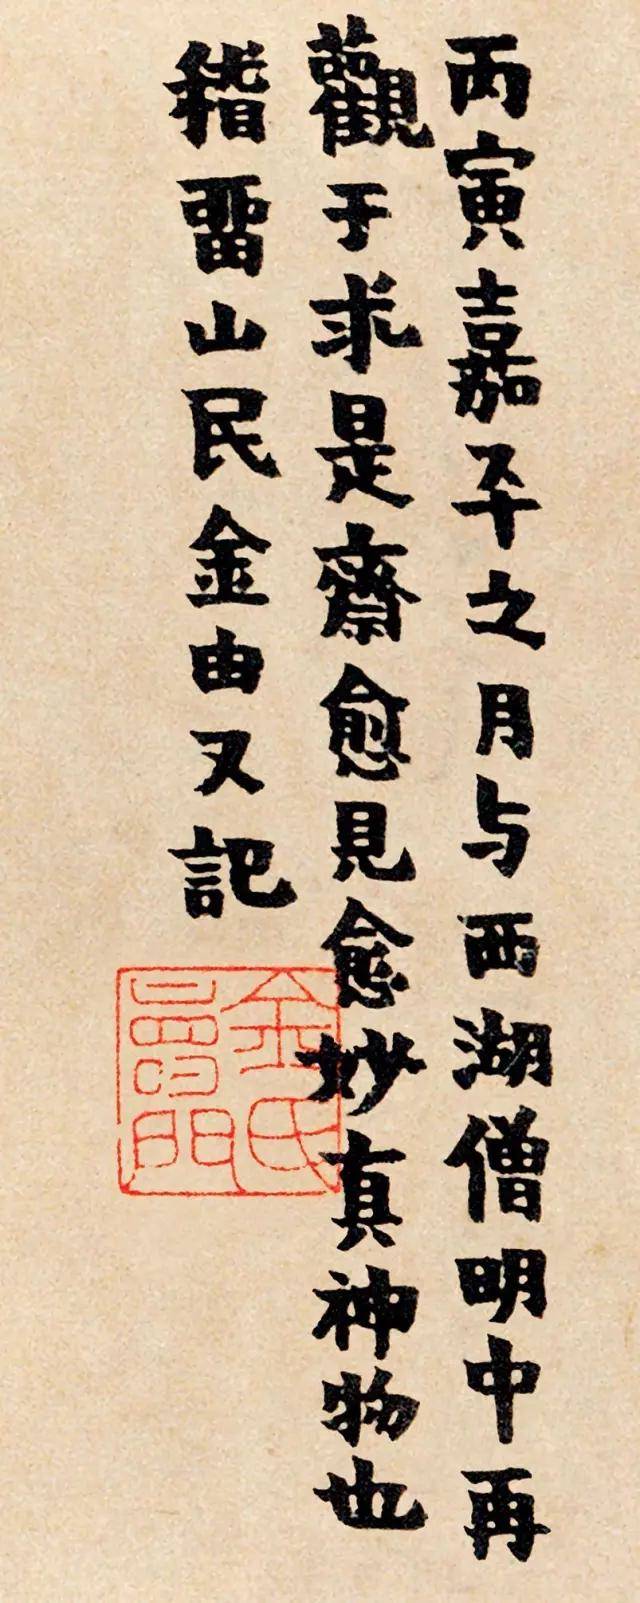 丙寅嘉平之月与西湖僧明中再
觀于求是齋愈見愈妙真神物也
稽畱山民金由又記
金氏